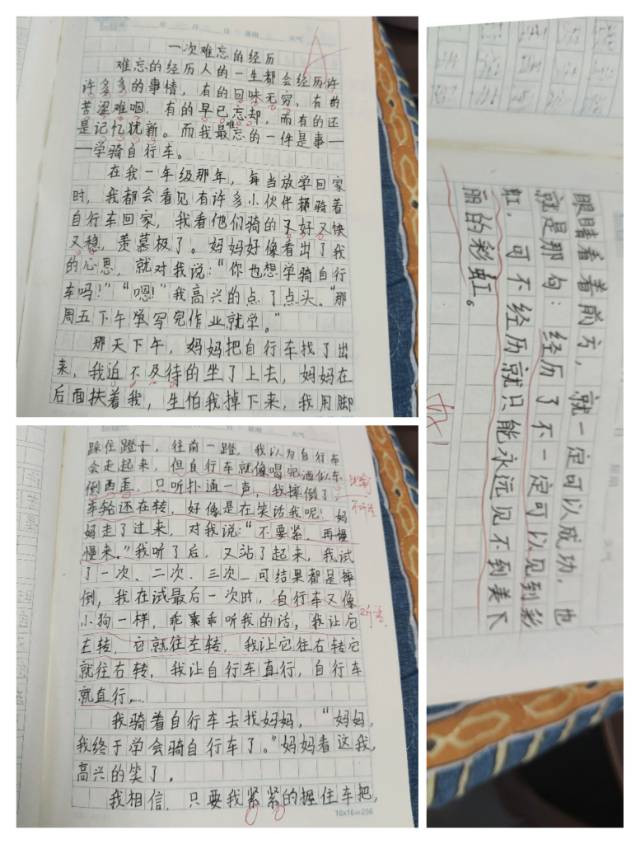 一次难忘的经历
难忘的经历人的一生都会经历许
许多多的事情，有的回味无穷，有的
苦涩难咽，有的早已忘却，而有的还
是记忆犹新。而我最难忘的一件是事—
—学骑自行车。
在我一年级那年，每当放学回家
时，我都会看见有许多小伙伴都骑着
自行车回家，我看他们骑的又好又快
又稳，羡慕极了。妈妈好像看出了我
的心思，就对我说：“你也想学骑自行
车吗！”“嗯！”我高兴的点了点头。“那
周五下午写完作业就学。”
那天下午，妈妈把自行车找了出
来，我迫不及待的坐了上去，妈妈在
后面扶着我，生怕我掉下来，我用脚
踩住蹬子，往前一蹬，我以为自行车
会走起来，但自行车就像喝完酒似
倒西歪。只听扑通一声，我摔倒了
车轮还在转，好像是在笑话我呢！妈
妈走了过来，对我说：“不要紧，再慢
慢来。”我听了后，又站了起来，我试
了一次、二次、三次 可结果都是摔
倒，我在试最后一次时，自行车又像
小狗一样，乖乖听我的话，我让它
左转，它就往左转，我让它往右转它
就往右转，我让自行车直行，自行车
就直行。
我骑着自行车去找妈妈，“妈妈，
我终于学会骑自行车了。”妈妈看这我，
高兴的笑了。
我相信，只要我紧紧的握住车把，
16x16=256
眼睛看着前方，就一定可以成功，也
就是那句：经历了不一定可以见到彩
虹，可不经历就只能永远见不到美
丽的彩虹。